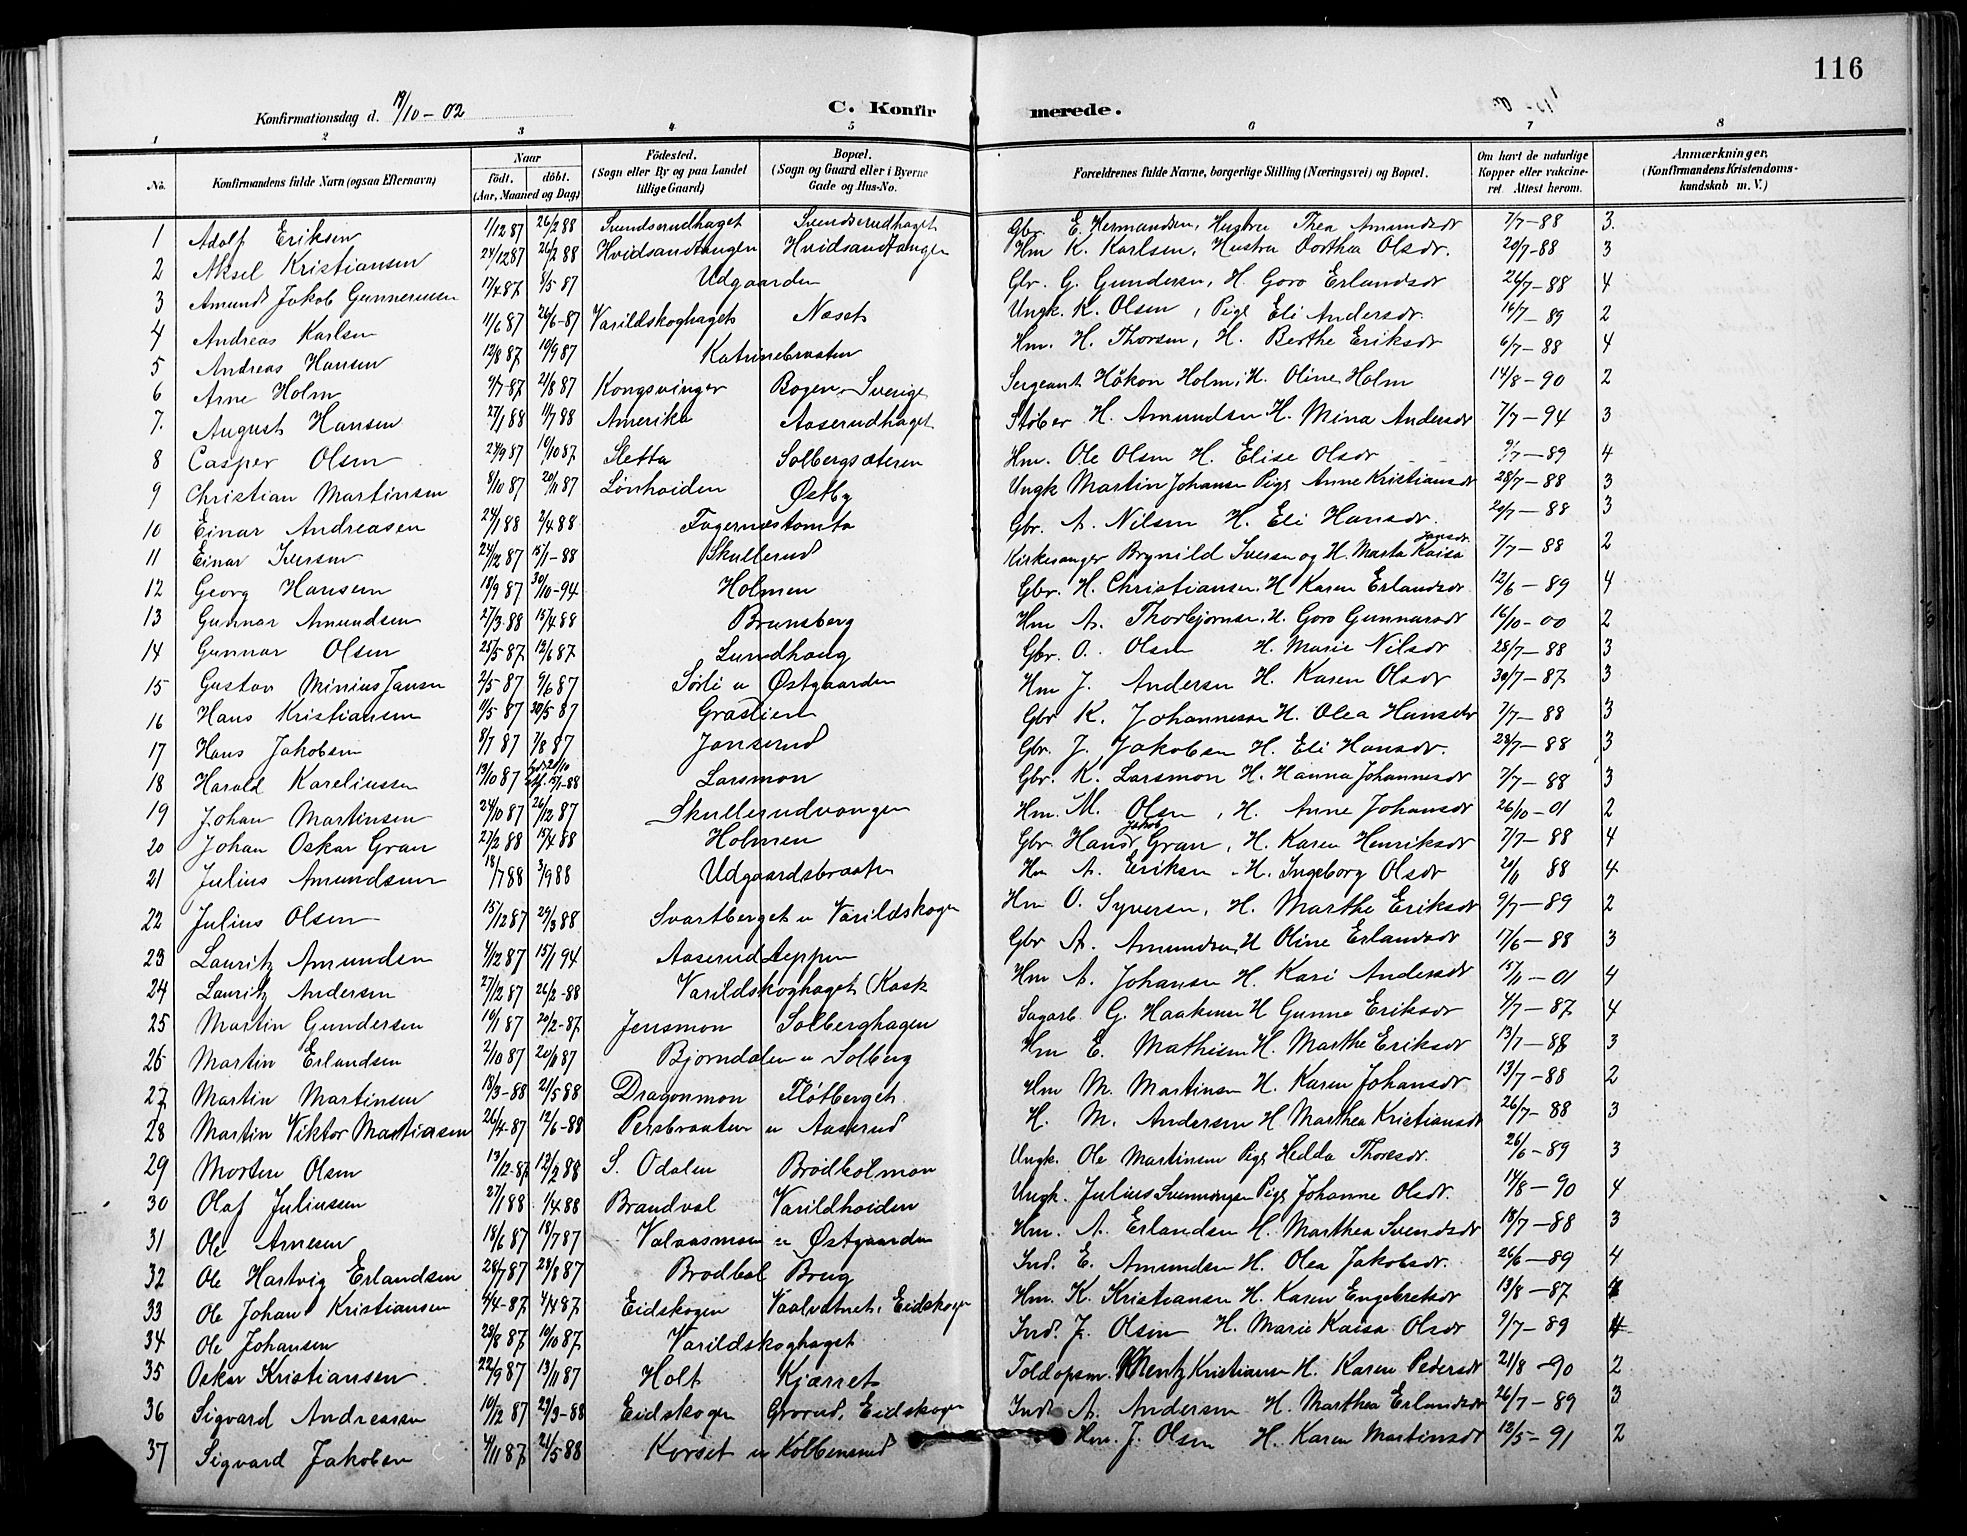 116
Konfirmationsdag d. 19/10 - 02
C. Konfirmerede.
1 2 3 4 5 6 7 8
No. Konfirmandens fulde Navn (ogsaa Efternavn) Naar födt. döbt. (Aar, Maaned og Dag) Födested. (Sogn eller By og paa Landet tillige Gaard) Bopæl. (Sogn og Gaard eller i Byerne Gade og Hus-No. Forældrenes fulde Navne, borgerlige Stilling (Næringsvei) og Bopæl. Om havt de naturlige Kopper eller vakcineret. Attest herom. Anmærkninger. (Konfirmandens Kristendomskundskab m. V.)
1 Adolf Eriksen 1/12 87 26/2 88 Svendserudhaget Svendserudhaget Gbr. E. Hermandsen, Hustru Thea Amundsdr 7/7-88 3.
2 Aksel Kristiansen 24/12 87 26/2 88 Hvidsandtangen Hvidsandtangen Hm K. Karlsen, Hustru Dorthea Olsdr. 20/7-88 3
3 Amund Jakob Gunnerusen 17/4 87 8/5 87 Udgaarden Gbr. G. Gundersen, H. Goro Erlandsdr 26/7-88 4
4 Andreas Karlsen 11/6 87 26/6-87 Varildskoghaget Næset Ungk. K. Olsen, Pige Eli Andersdr. 16/7-89 2
5 Andreas Hansen 12/8 87 10/9 87 Katrinebraaten Hm. H. Thorsen, H. Berthe Eriksdr 6/7-88 4
6 Arne Holm 7/7-87 21/8 87 Kongsvinger Bogen, Sverige Sergeant Håkon Holm, H. Oline Holm 14/8-90 2
7. August Hansen 27/1 88 1/7 88 Amerika Aaserudhaget Støber H. Amundsen H. Mina Andersdr 7/7-94 3
8 Casper Olsen 24/9 87 10/10 87 Sletta Solbergsæteren Hm. Ole Olsen H. Elise Olsdr 9/7-89 4
9 Christian Martinsen 8/10 87 20/11 87 Lønhøiden Østby Ungk Martin Johansen Pige Anne Kristiansdr 28/7-88 3
10 Einar Andreasen 24/1 88 2/4 88 Fagernæstomta Gbr. A. Nilsen H. Eli Hansdr. 20/7-88 3
11 Einar Iversen 24/12 87 15/1-88 Skullerud Kirkesanger Brynild Iversen og H. Marta Kaisa Jansdr. 7/7-88 2
12 Georg Hansen 18/9 87 30/10-94 Holmen Gbr. H. Christiansen, H Karen Erlandsdr 12/6-89 4
13 Gunnar Amundsen 27/3-88 15/4 88 Brunsberg Hm A. Thorbjørnsen, H. Goro Gunnarsdr 16/10-00 2
14 Gunnar Olsen 25/5 87 12/6 87 Lundhaug Gbr. O. Olsen H. Marie Nilsdr 28/7-88 3
15 Gustav Minius Jansen 2/5-87 9/6 87 Sørli u Østgaarden Hm J. Andersen H. Karen Olsdr 30/7-87 3
16 Hans Kristiansen 11/5 87 30/5-87 Grastien Gbr K. Johannessen H. Olea Hansdr 7/7-88 3
17 Hans Jakobsen 8/7 87 7/8 87 Janserud Gbr. J. Jakobsen H. Eli Hansdr. 28/7-88 3
18 Harald Kareliussen 13/10 87 15/1-88 Larsmon Gbr. K. Larsmon H. Hanna Johannesdr 7/7-88 3
19 Johan Martinsen 24/10 87 26/12 87 Skullerudvangen Hm. M. Olsen, H. Anne Johansdr 26/10-01 2
20 Johan Oskar Gran 27/2 88 15/4 88 Holmen Gbr Hans Jakob Gran, H. Karen Henriksdr 7/7-88 4
21 Julius Amundsen 18/7 88 3/9 88 Udgaardsbraaten Hm A. Eriksen - H. Ingeborg Olsdr 20/11 88 4
22 Julius Olsen 15/12 87 29/3 88 Svartberget u Varildskogen Hm O. Syversen, H. Marthe Eriksdr 9/7-89 2
23 Lauritz Amundsen 4/12 87 15/1 94 Aaserudteppen Gbr A. Amundsen H Oline Erlandsdr 17/6-88 3
24 Lauritz Andersen 27/12 87 26/2-88 Varildskoghaget (Kask Hm A. Johansen H. Kari Andersdr 15/11-01 4
25 Martin Gundersen 10/1 87 20/2-87 Jensmon Solberghagen Sagarb. G. Haakensen H Gunne Eriksdr 4/7-87 4
26 Martin Erlandsen 2/10 87 20/11 87 Bjørndalen u Solberg Hm E. Mathisen H. Marthe Eriksdr 13/7-88 3
27 Martin Martinsen 18/3-88 21/5 88 Dragonmon Fløtberget. Hm M. Martinsen H. Karen Johansdr 13/7-88 2
28 Martin Viktor Martinsen 26/4-87 12/6-88 Persbraaten u Aaserud H. M. Andersen H Marthea Kristiansdr 26/7-88 3
29 Morten Olsen 13/12-87 12/2 88 S. Odalen Brødbølmon Ungk. Ole Martinsen Pige Hedda Thoresdr. 26/6-89 3
30 Olaf Juliussen 27/1 88 1/4 88 Brandval Varildhøiden Ungk. Julius Svenningsen Pige Johanne Olsdr. 14/8-90 4
31 Ole Arnesen 18/6 87 18/7 87 Valaasmoen u Østgaarden Hm. A. Erlandsen H. Marthea Svendsdr 18/7-88 3
32 Ole Hartvig Erlandsen 28/7 87 28/8 87 Brødbøl Brug Ind. E. Amundsen H. Olea Jakobsdr. 26/6-89 4
33 Ole Johan Kristiansen 4/4-87 Eidskogen Vaalvatnet, Eidskogen Hm. K. Kristiansen H. Karen Engebretsdr 13/8-87 4
34 Ole Johansen 28/8 87 10/10 87 Varildskoghaget Ind. J. Olsen H. Marie Kaisa Olsdr 9/7-89 4
35 Oskar Kristiansen. 22/9 87 13/11 87 Holt Kjærret Toldopsm. Mentz Kristiansen H. Karen Pedersdr 21/8-90 2
36 Sigvard Andreassen 10/12 87 29/3-88 Eidskogen Grorud, Eidskogen Ind. A. Andersen H. Marthea Erlandsdr 26/7-89 3
37 Sigvard Jakobsen 4/11 87 21/5 88 Korset u Kolbensrud Hm. J. Olsen H. Karen Martinsdr 12/5-91 2